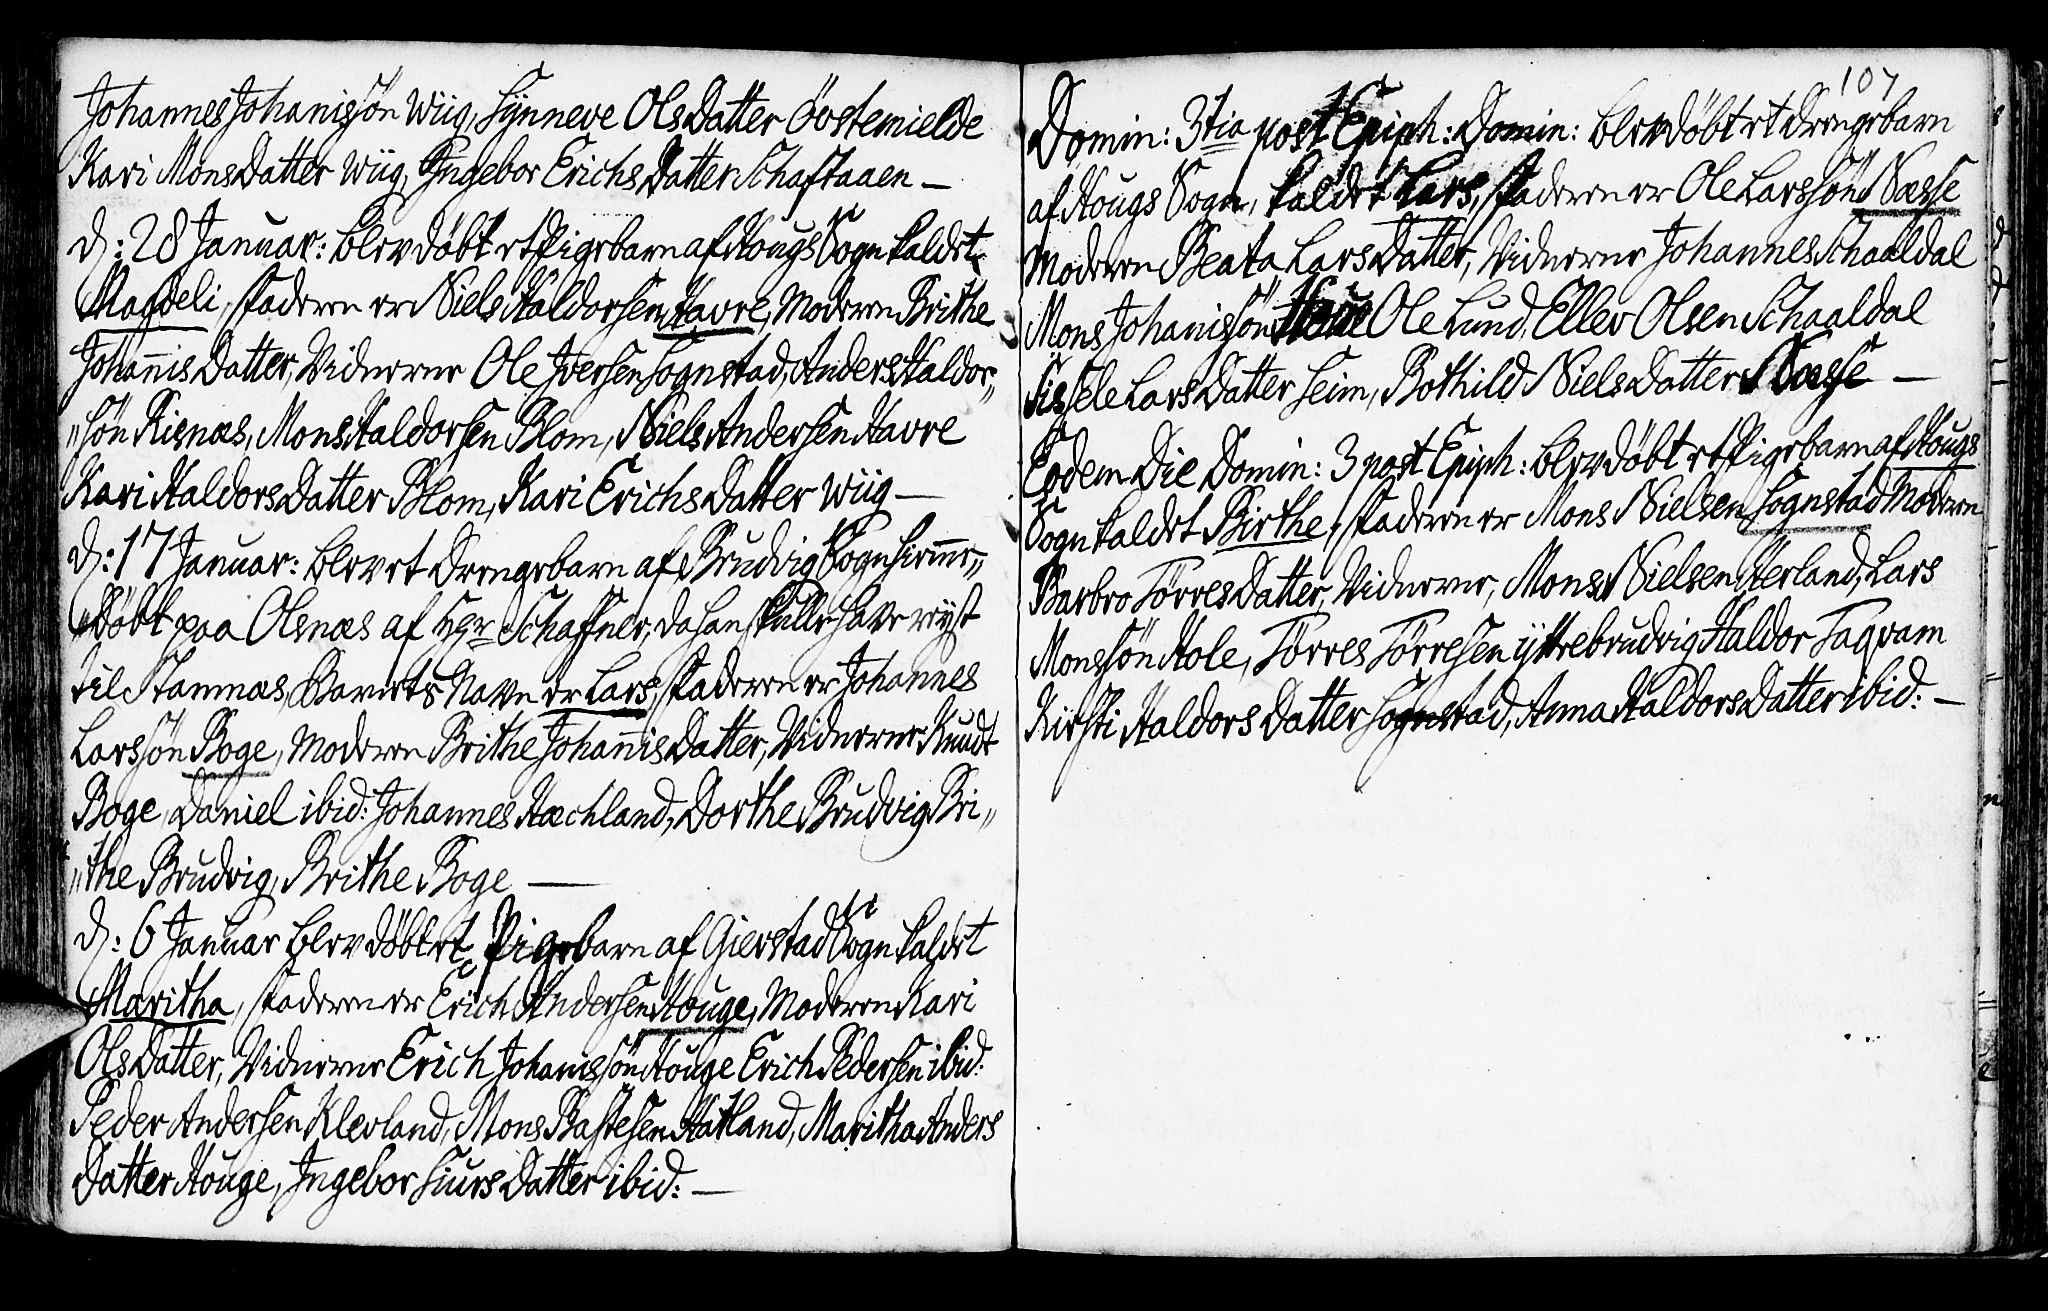 Johannes Johanissøn Wiig, Synneve Ols Datter Øvstemielde
Kari Mons Datter Wiig, Yngebor Erichs Datter Schaftaaen —
D: 28 Januar: blev døbt et Pigebarn af Hougs Sogn kaldet
Magdeli, Faderen er Niels Haldorsen Havre, Moderen Brithe
Johannis Datter, Vidnerne Ole Iversen Sognstad, Anders Haldor„
„søn Risnæs, Mons Haldorsen Blom, Niels Andersen Havre
Kari Haldors Datter Blom, Kari Erichs Datter Wiig —
D: 17 Januar: blev et Drengebarn af Brudvig Sogn hiemme„
„døbt paa Olsnæs af Hr Schaffner, da han skulle have reyst
til Stamnæs, Barnets Navn er Lars, Faderen er Johannes
Larssøn Boge, Moderen Brithe Johannis Datter, Vidnerne Knudt
Boge, Daniel ibid: Johannes Hæchland, Dorthe Brudvig Bri„
„the Brudvig, Brithe Boge —
D: 6 Januar blev døbt et Pigebarn af Gierstad Sogn kaldet
Maritha, Faderen er Erich Andersen Houge, Moderen Kari
Ols Datter, Vidnerne Erich Johanissøn Houge Erich Pedersen ibid:
Peder Andersen Klevland, Mons Bastesen Hatland, Maritha Anders
Datter Houge, Ingebor Siurs Datter ibid: —
107
Domin: 3tia post Epiph: Domin: blev døbt et Drengebarn
af Hougs Sogn, kaldet Lars, Faderen er Ole Larssøn Næsse
Moderen Beata Lars Datter, Vidnerne Johannes Schaaldal
Mons Johanissøn Ole Lund, Ellev Olsen Schaaldal
Sissele Lars Datter Seim, Bothild Niels Datter Næsse —
Eodem Die Domin: 3 post Epiph: blev døbt et Pigebarn af Hougs
Sogn kaldet Birthe, Faderen er Mons Nielsen Sognstad Moderen
Barbro Tørres Datter, Vidnerne, Mons Nielsen Herland, Lars
Monssøn Hole, Tørres Tørresen yttrebrudvig Haldor Taqvam
Kirsti Haldors Datter Sognstad, Anna Haldors Datter ibid: —